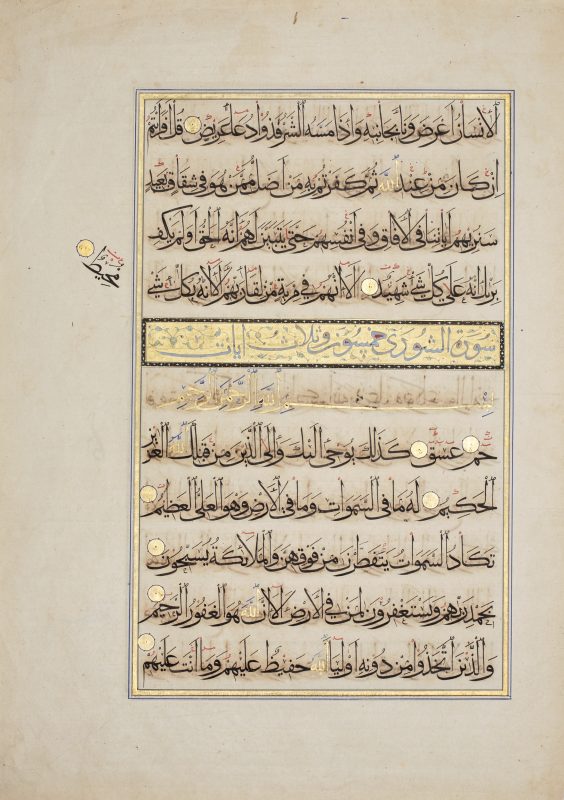 الانسان اعرض ونا بجانبه واذا مسه الشر فذو دعاء عريض قل ارايتم
ان كان من عند الله ثم كفرتم به من اضل ممن هو في شقاق بعيد
سنريهم اياتنا في الافاق وفي انفسهم حتى يتبين لهم انه الحق اولم يكف
بربك انه على كل شئ شهيد الا انهم في مرية من لقاء ربهم الا انه بكل شئ
محيط
سورة الشورى خمسون وثلاث ايات
بسم الله الرحمن الرحيم
حم عسق كذلك يوحى اليك والى الذين من قبلك الله العزيز
الحكيم له ما في السموات وما في الارض وهو العلي العظيم
تكاد السموات يتفطرن من فوقهن والملائكة يسبحون
بحمد ربهم ويستغفرون لمن في الارض الا ان الله هو الغفور الرحيم
والذين اتخذوا من دونه اولياء الله حفيظ عليهم وما انت عليهم